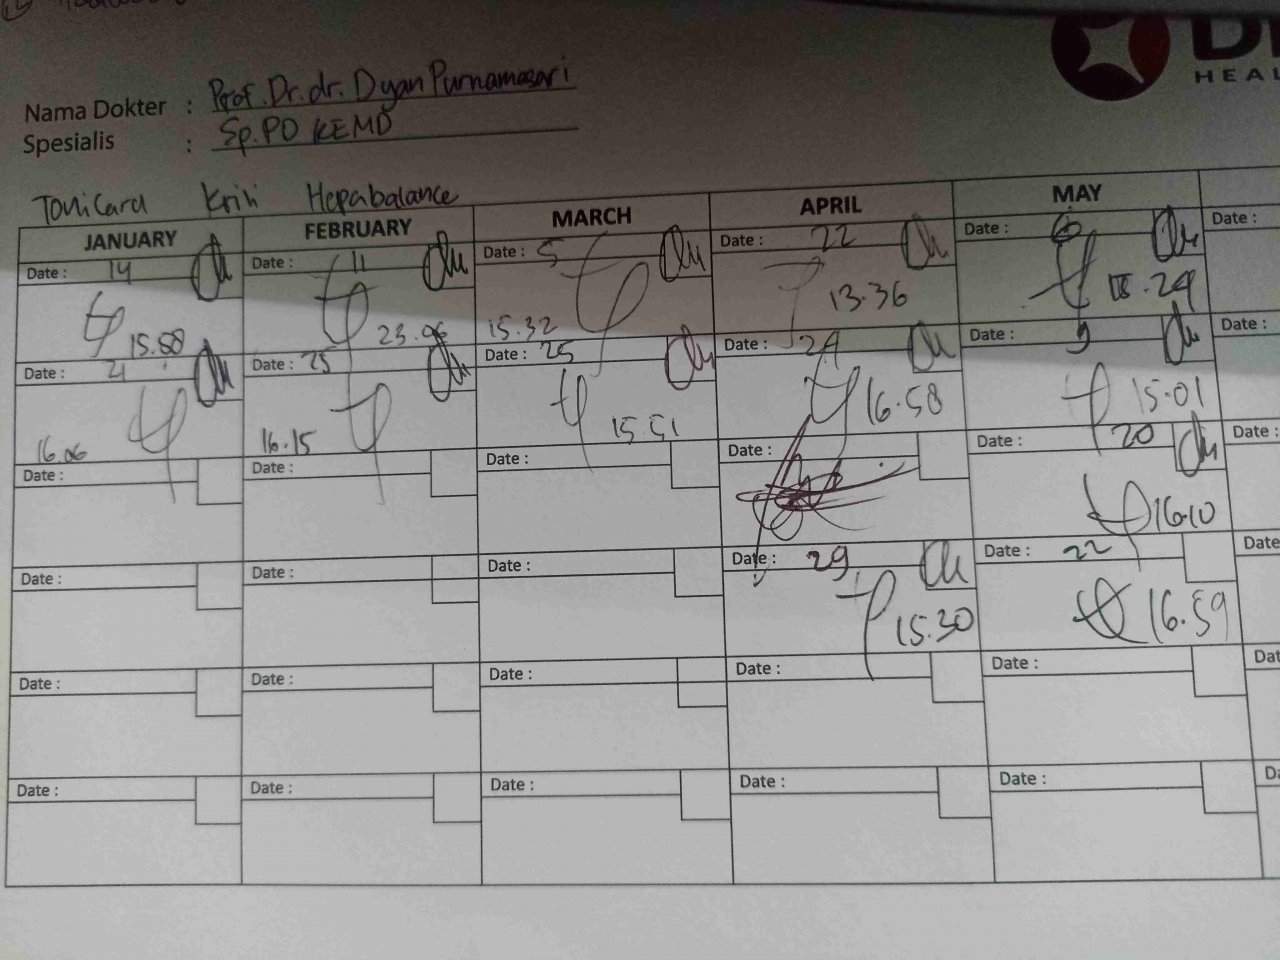 Nama Dokter : Prof. Dr. dr. Dyan Purnamasari
Spesialis : Sp.PD KEMD
HEAL
Tonicard Krili Hepabalance
JANUARY FEBRUARY MARCH APRIL MAY
Date : 14 Date : 11 Date : 5 Date : 22 Date : 6 Date :
23.06 15.32 13.36
Date : 21 Date : 25 Date : 25 Date : 24 Date : 9 Date :
16.06 16.15 15.51 16.58 15.01
Date : Date : Date : Date : 20 Date :
16.10
Date : Date : Date : Date : 29 Date : 22 Date
15.30 16.59
Date : Date : Date : Date : Date : Dat
Date : Date : Date : Date : Date : Da